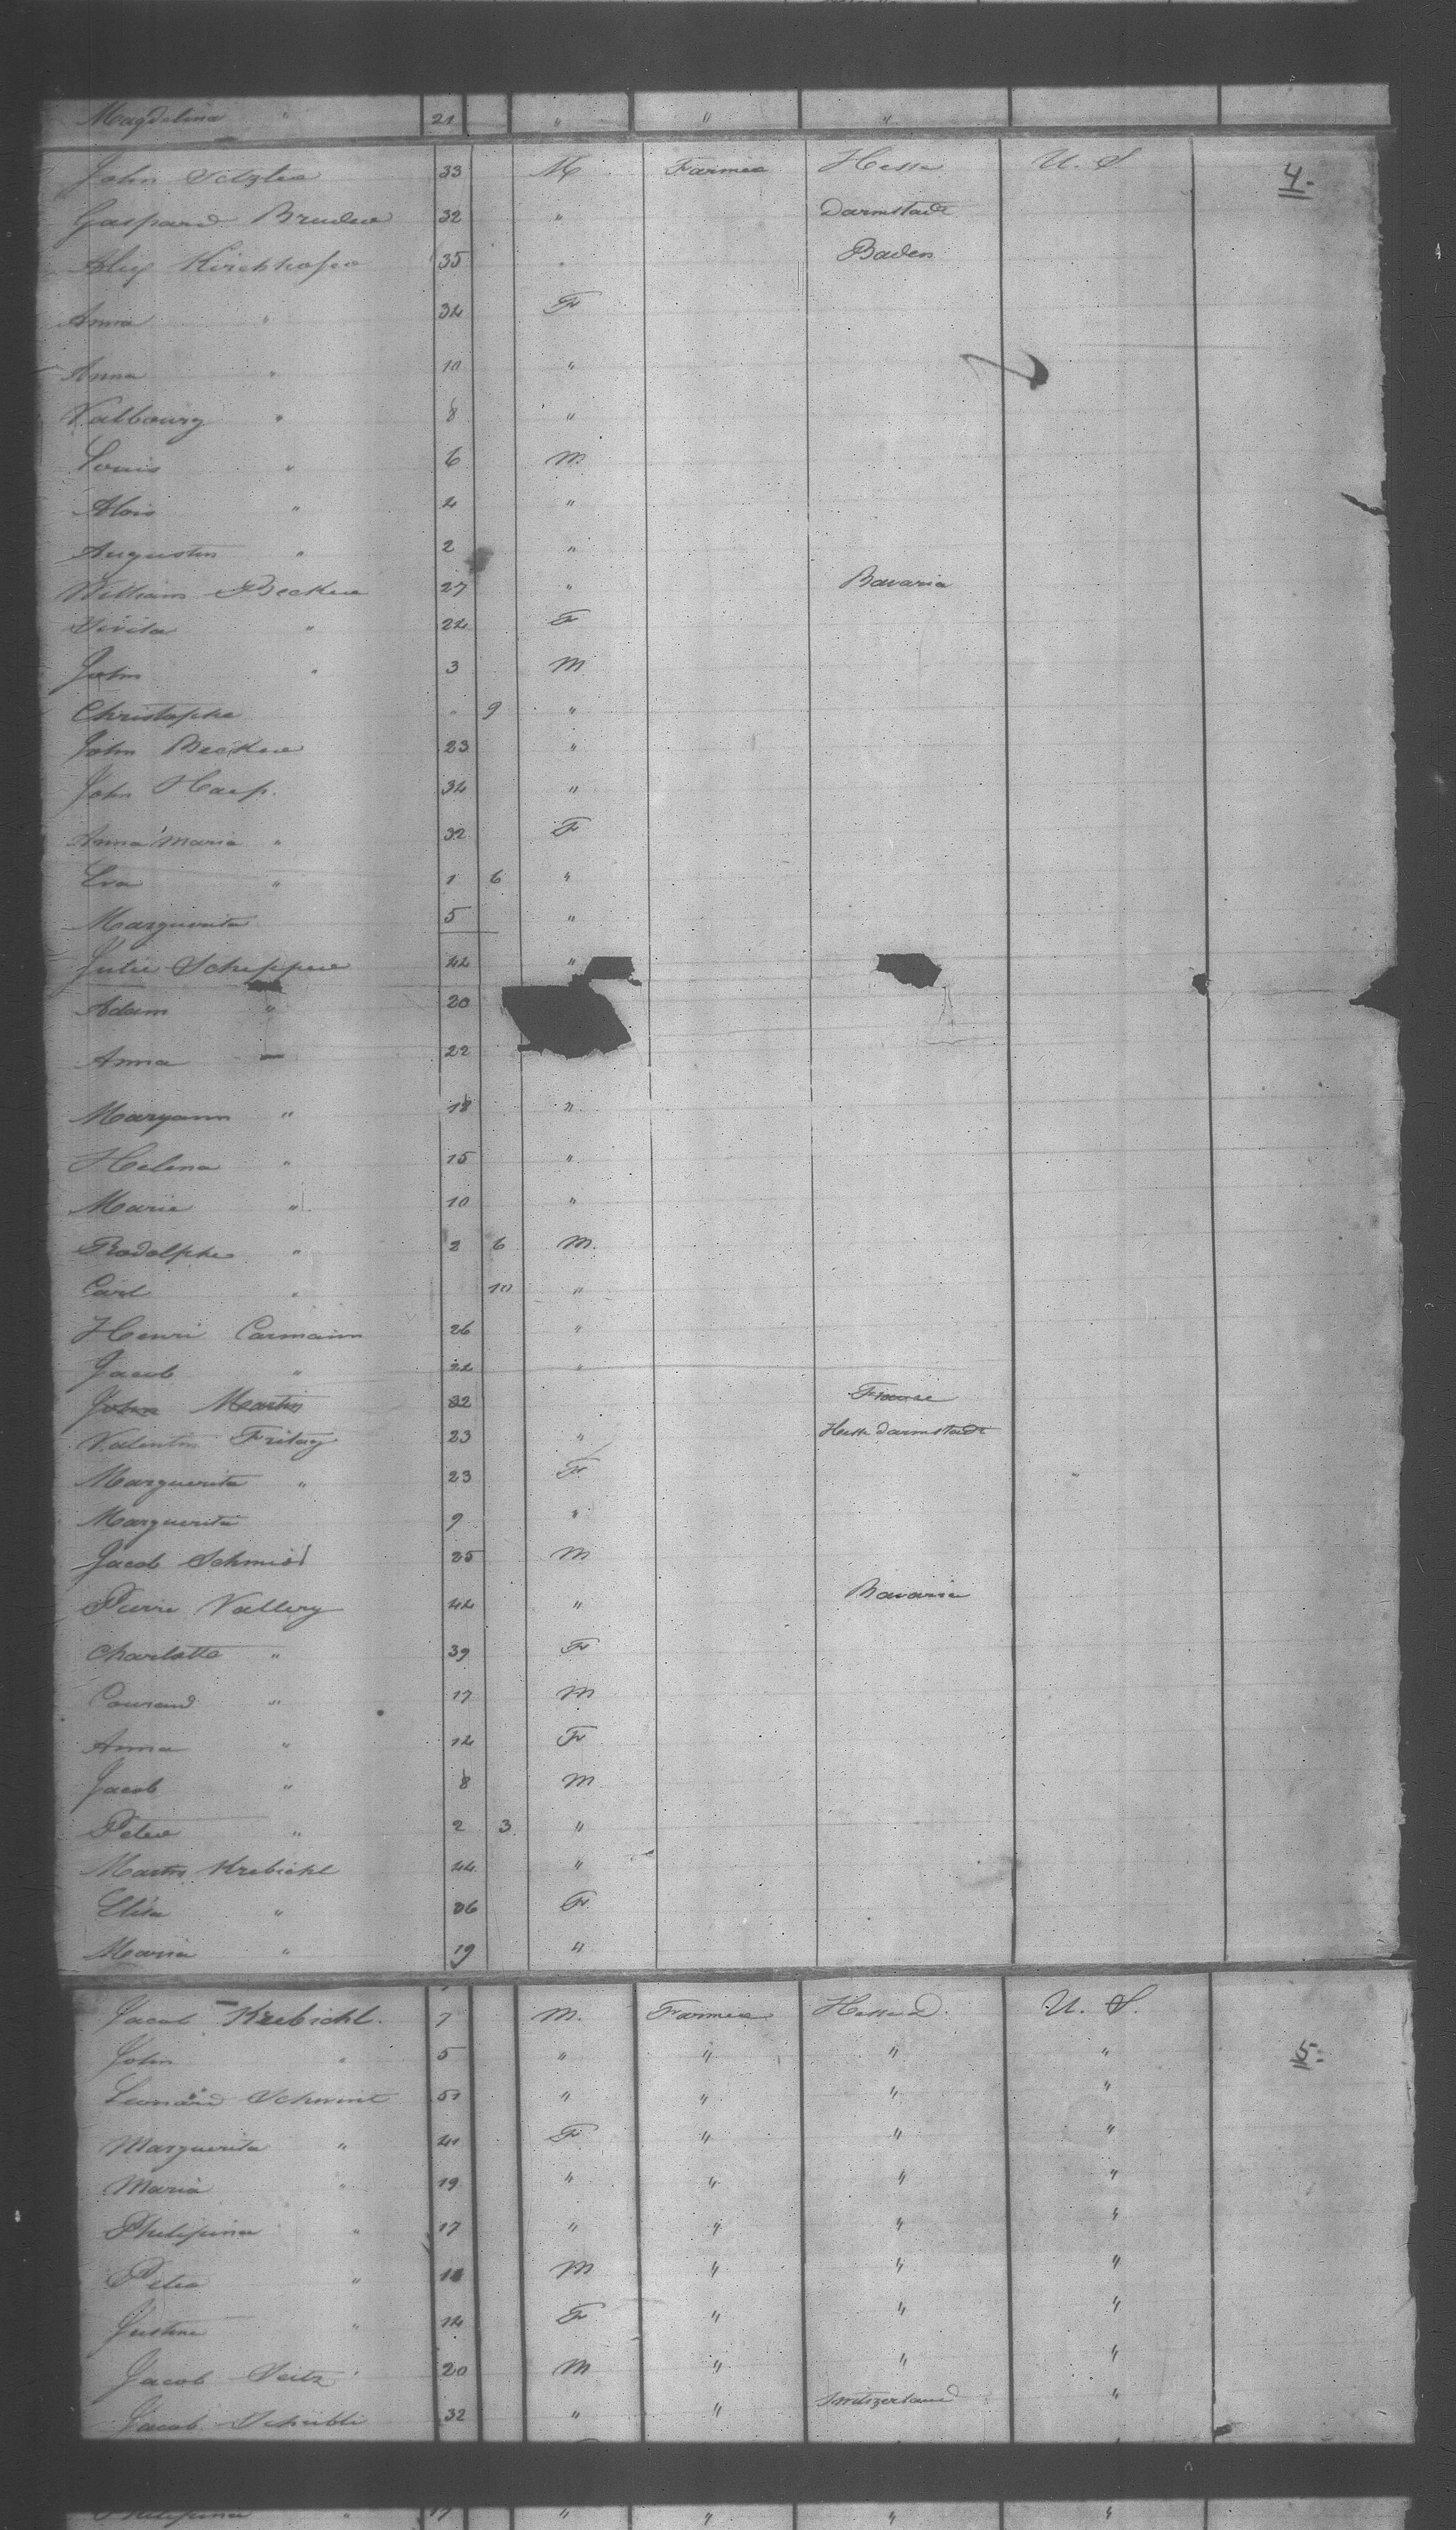 Magdelina " 21 " " "
John 33 M Farmer Hesse U. S 4.
Gaspard Bruder 32 " Darmstadt
Kirchhofer 35 " Baden
Anna " 34 F
Anna " 10 "
Valbourg " 8 "
Louis " 6 M
Alois " 4 "
Augustin " 2 "
William Becker 27 " Bavaria
" 24 F
John " 3 M
Christophe " 9 "
John Becker 23 "
John 34 "
Anna Maria " 32 F
Eva " 1 6 "
Marguerita 5 "
Julie Schepper 42 "
Adam " 20
Anna 22
Maryann " 18 "
Helena " 15 "
Marie " 10 "
Rodolphe " 2 6 M.
Carl " 10 "
Henri Carmann 26 "
Jacob " 22 "
John Martin 32 France
Valentin Fritag 23 " Hesse Darmstadt
Marguerita " 23 F
Marguerita 9 "
Jacob Schmid 25 M
Pierre Vallery 44 " Bavaria
Charlotte " 39 F
Conrand " 17 M
Anna " 12 F
Jacob " 8 M
Peter " 2 3 "
Martin Krebichl 44 "
Elisa " 36 F
Maria " 19 "
Jacob Krebichl. 7 M. Farmer Hesse D. U. S.
John " 5 " " " " 5.
Leonard Schwint 51 " " " "
Marguerita " 41 F " " "
Maria " 19 " " " "
Philipina " 17 " " " "
Peter " M " " "
Justine " 14 F " " "
Jacob Seitz 20 M " " "
Jacob Schubli 32 " " Switzerland "
Philipina " 17 " " " "